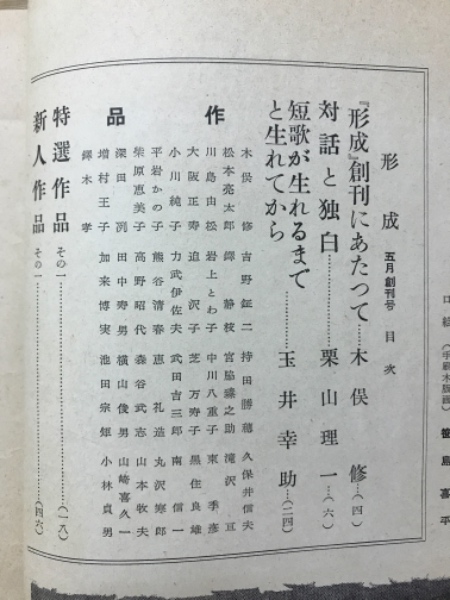 口絵(手刷木版画)笹島喜平
形成 五月創刊号 目次
『形成』創刊にあたつて……木俣修…(四)
対話と独白……栗山理一…(六)
短歌が生れるまで
と生れてから……玉井幸助…(二四)
作品
木俣修 吉野鉦二 持田勝穂 久保井信夫
松本亮太郎 鐸静枝 宮脇 之助 滝沢亘
川島由松 岩上とわ子 中川八重子 東季彦
大阪正寿 迫沢子 芝万寿子 黒住良雄
小川純子 力武伊佐夫 武田吉三郎 南信一
平岩かの子 熊谷清春 恵礼造 丸沢寒郎
柴原恵美子 高野昭代 森谷武志 山本牧夫
深田冽 田中寿男 横山俊男 山崎喜久一
増村王子 加来博実 池田宗矩 小林貞男
鐸木孝
特選作品 その一……(一八)
新人作品 その一……(四六)